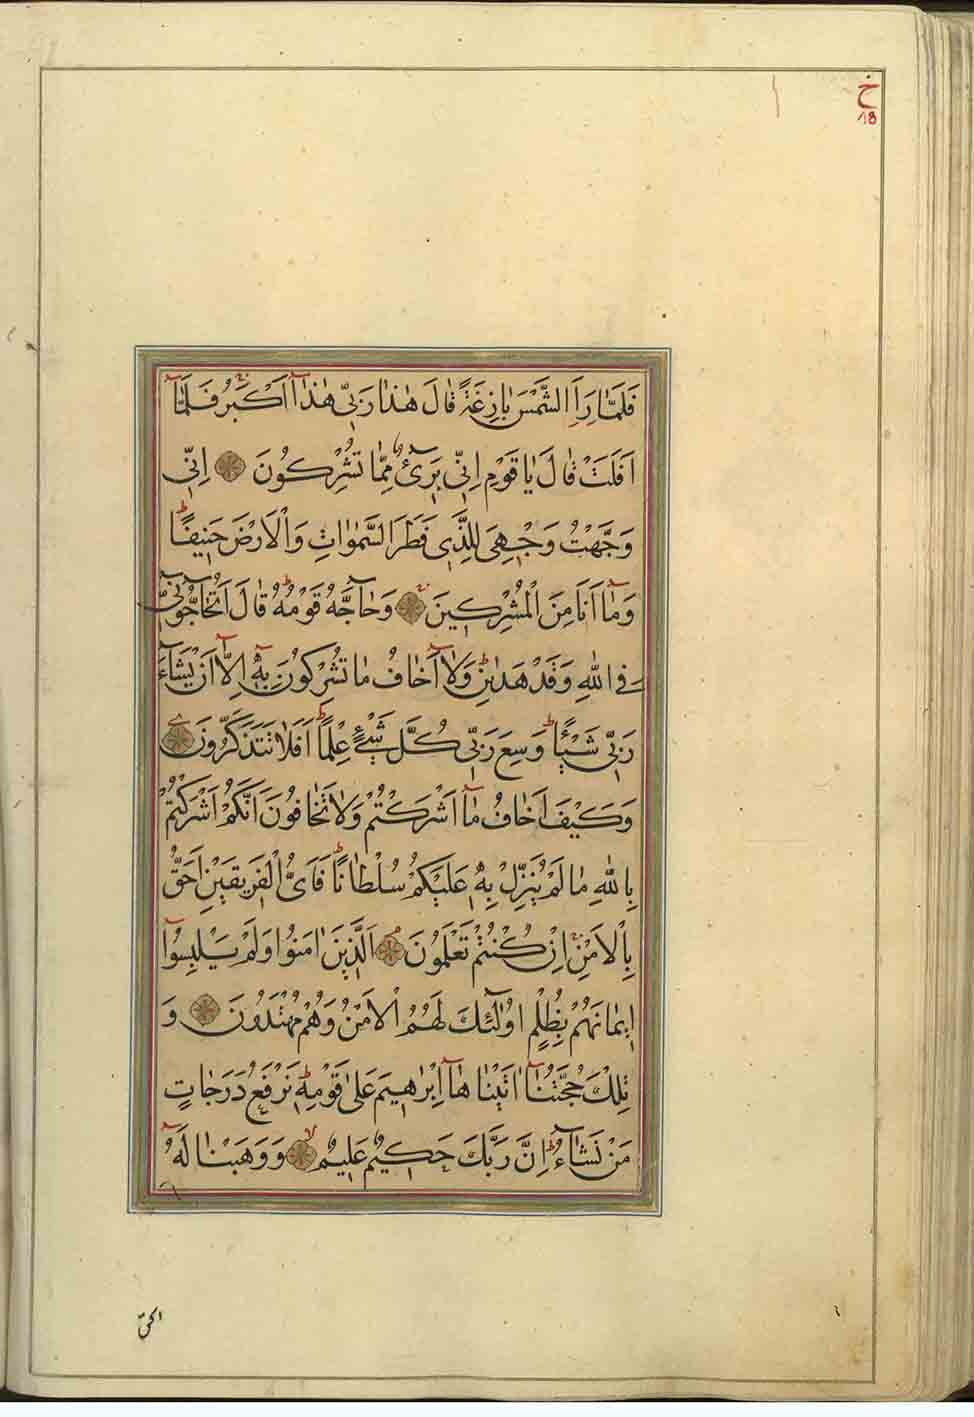 خ
18
فَلَمَّا رَاَ الشَّمْسَ بَازِغَةً قَالَ هٰذَا رَبّ۪ي هٰذَٓا اَكْبَرُ فَلَمَّٓا
اَفَلَتْ قَالَ يَا قَوْمِ اِنّ۪ي بَر۪ٓيءٌ مِمَّا تُشْرِكُونَ اِنّ۪ي
وَجَّهْتُ وَجْهِيَ لِلَّذ۪ي فَطَرَ السَّمٰوَاتِ وَالْاَرْضَ حَن۪يفًا
وَمَٓا اَنَا مِنَ الْمُشْرِك۪ينَ وَحَٓاجَّهُ قَوْمُهُ قَالَ اَتُحَٓاجُّٓونّ۪ي
فِي اللّٰهِ وَقَدْ هَدٰينِ وَلَٓا اَخَافُ مَا تُشْرِكُونَ بِه۪ٓ اِلَّٓا اَنْ يَشَٓاءَ
رَبّ۪ي شَيْـًٔا وَسِعَ رَبّ۪ي كُلَّ شَيْءٍ عِلْمًا اَفَلَا تَتَذَكَّرُونَ
وَكَيْفَ اَخَافُ مَٓا اَشْرَكْتُمْ وَلَا تَخَافُونَ اَنَّكُمْ اَشْرَكْتُمْ
بِاللّٰهِ مَا لَمْ يُنَزِّلْ بِه۪ عَلَيْكُمْ سُلْطَانًا فَاَيُّ الْفَر۪يقَيْنِ اَحَقُّ
بِالْاَمْنِ اِنْ كُنْتُمْ تَعْلَمُونَ اَلَّذ۪ينَ اٰمَنُوا وَلَمْ يَلْبِسُٓوا
ا۪يمَانَهُمْ بِظُلْمٍ اُو۬لٰٓئِكَ لَهُمُ الْاَمْنُ وَهُمْ مُهْتَدُونَ وَ
تِلْكَ حُجَّتُنَٓا اٰتَيْنَاهَٓا اِبْرٰه۪يمَ عَلٰى قَوْمِه۪ نَرْفَعُ دَرَجَاتٍ
مَنْ نَشَٓاءُ اِنَّ رَبَّكَ حَك۪يمٌ عَل۪يمٌ وَوَهَبْنَا لَهُٓ